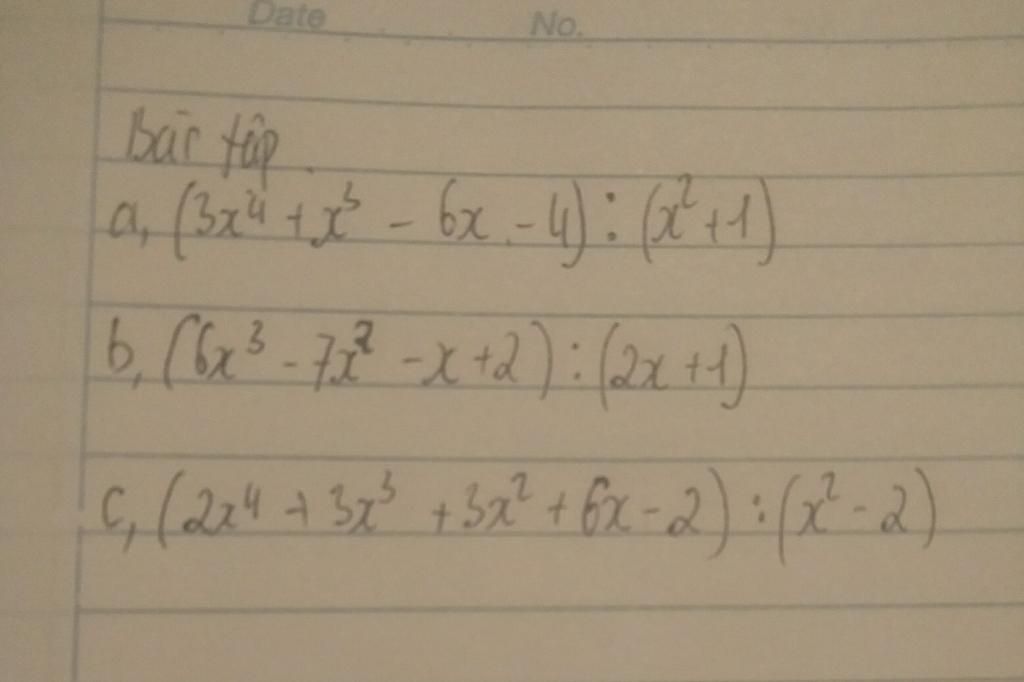 Date No.
Bài tập
a, (3x⁴ + x³ - 6x - 4) : (x² + 1)
b, (6x³ - 7x² - x + 2) : (2x + 1)
c, (2x⁴ + 3x³ + 3x² + 6x - 2) : (x² - 2)